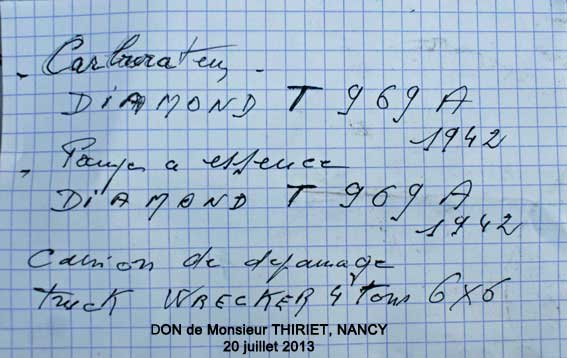 - Carburateur -
DiAMOND T 969 A
1942
- Pompe a essence
DiAMOND T 969 A
1942
Camion de depannage
truck WRECKER 4 tons 6X6
DON de Monsieur THIRIET, NANCY
20 juillet 2013